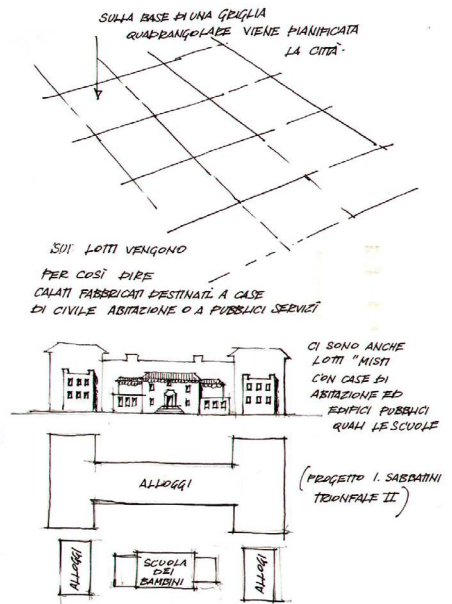 SULLA BASE DI UNA GRIGLIA
QUADRANGOLARE VIENE PIANIFICATA
LA CITTÀ.
SUI LOTTI VENGONO
PER COSÌ DIRE
CALATI FABBRICATI DESTINATI A CASE
DI CIVILE ABITAZIONE O A PUBBLICI SERVIZI
CI SONO ANCHE
LOTTI "MISTI
CON CASE DI
ABITAZIONE ED
EDIFICI PUBBLICI
QUALI LE SCUOLE
ALLOGGI
(PROGETTO I. SABBATINI
TRIONFALE II)
ALLOGGI
SCUOLA
DEI
BAMBINI
ALLOGGI